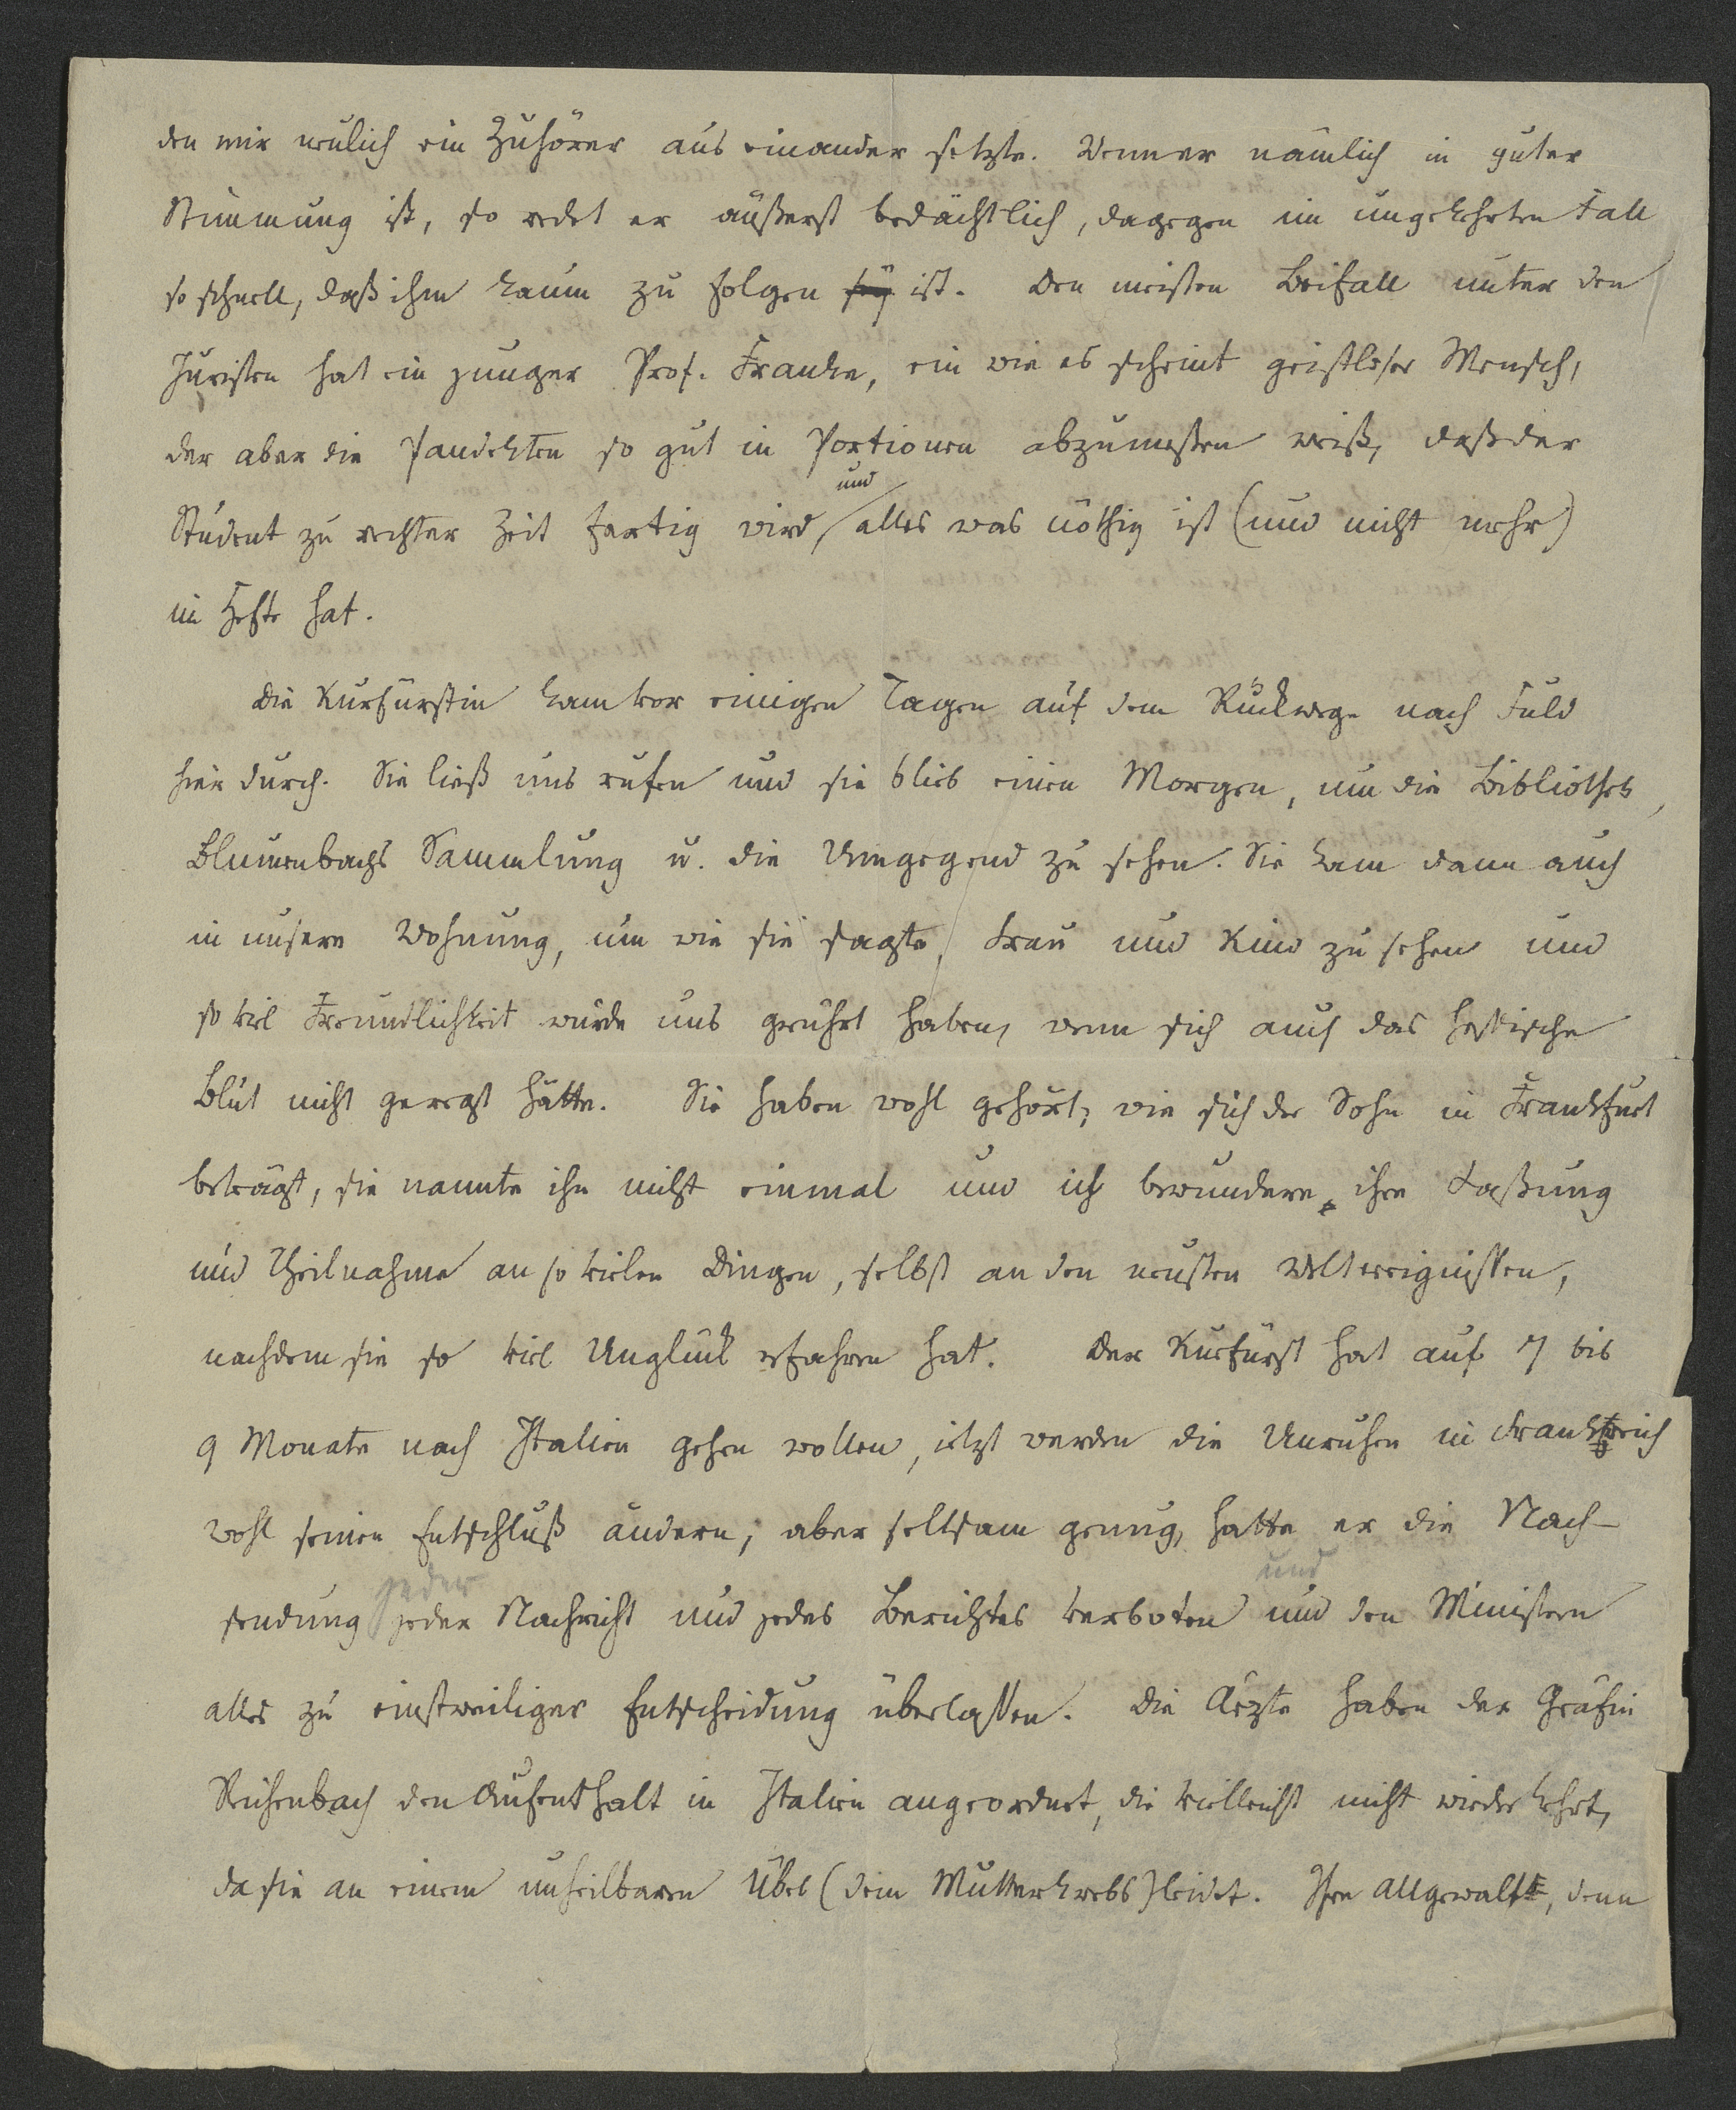 den mir neulich ein Zuhörer aus einander setzte. Wenn er nämlich in guter
Stimmung ist, so redet er äußerst bedächtlich, dagegen im umgekehrten Fall
so schnell, daß ihm kaum zu folgen sey ist. Den meisten Beifall unter den
Juristen hat ein junger Prof. Franke, ein wie es scheint geistloser Mensch,
der aber die Pandekten so gut in Portionen abzumessen weiß, daß der
und
Student zu rechter Zeit fertig wird, alles was nöthig ist (und nicht mehr)
im Hefte hat.
Die Kurfürstin kam vor einigen Tagen auf dem Rückwege nach Fuld
hier durch. Sie ließ uns rufen und sie blieb einen Morgen, um die Bibliothek,
Blumenbachs Sammlung u. die Umgegend zu sehen. Sie kam dann auch
in unsere Wohnung, um wie sie sagte, Frau und Kind zu sehen und
so viel Freundlichkeit würde uns gerührt haben, wenn sich auch das hessische
Blut nicht geregt hätte. Sie haben wohl gehört, wie sich der Sohn in Frankfurt
beträgt, sie nannte ihn nicht einmal und ich bewundere ihre Faßung
und Theilnahme an so vielen Dingen, selbst an den neusten Weltereignissen,
nachdem sie so viel Unglück erfahren hat. Der Kurfürst hat auf 7 bis
9 Monate nach Italien gehen wollen, jetzt werden die Unruhen in Frankreich
wohl seinen Entschluß ändern; aber seltsam genug, hatte er die Nach-
jeder und
sendung jeder Nachricht und jedes Berichtes verboten und den Ministern
alles zu einstweiliger Entscheidung überlassen. Die Aerzte haben der Gräfin
Reichenbach den Aufenthalt in Italien angeordnet, die vielleicht nicht wieder kehrt,
da sie an einem unheilbaren Übel (dem Mutterkrebs) leidet. Ihre Allgewalt, denn